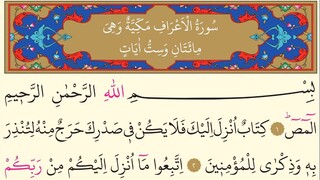 سُورَةُ الْاَعْرَافِ مَكِّيَّةٌ وَهِيَ
مِائَتَانِ وَسِتُّ اٰيَاتٍ
بِسْمِ اللّٰهِ الرَّحْمٰنِ الرَّحٖيمِ
الٓمٓصٓ ١ كِتَابٌ اُنْزِلَ اِلَيْكَ فَلَا يَكُنْ فٖى صَدْرِكَ حَرَجٌ مِنْهُ لِتُنْذِرَ
بِهٖ وَذِكْرٰى لِلْمُؤْمِنٖينَ ٢ اِتَّبِعُوا مَٓا اُنْزِلَ اِلَيْكُمْ مِنْ رَبِّكُمْ